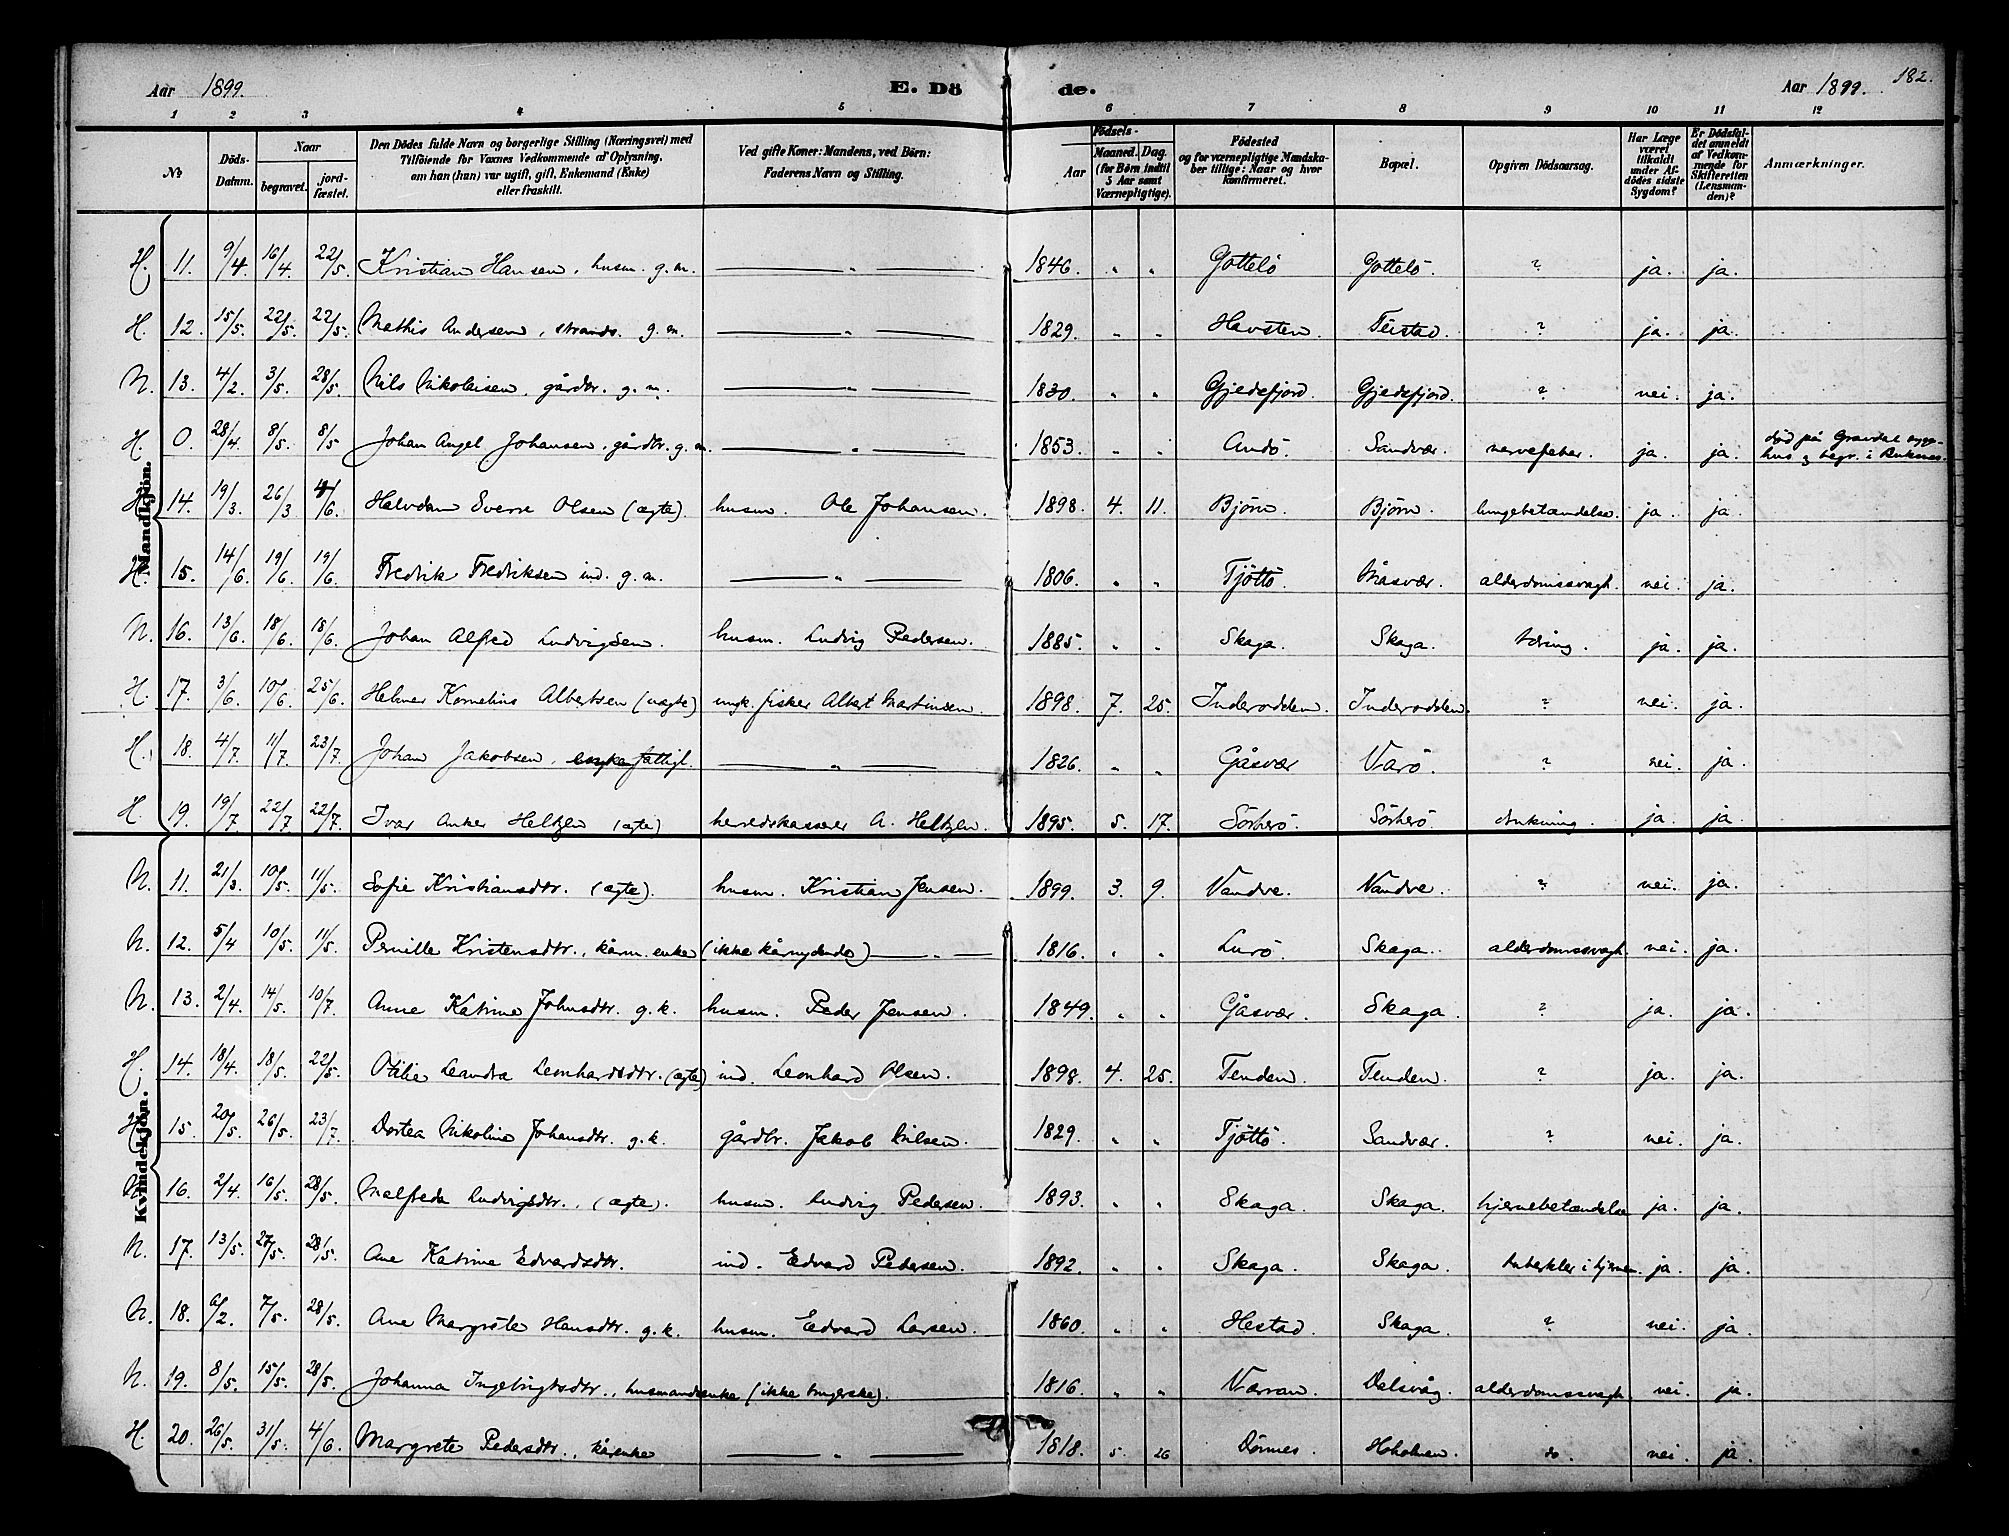 Aar 1899. E. Dö de. Aar 1899. 182.
1 2 3 4 5 6 7 8 9 10 11 12
№ Döds-Datum. Naar begravet. jord-fæstet. Den Dödes fulde Navn og borgerlige Stilling (Næringsvei) med Tilföiende for Voxnes Vedkommende af Oplysning, om han (hun) var ugift, gift, Enkemand (Enke) eller fraskilt. Ved gifte Koner: Mandens, ved Börn: Faderens Navn og Stilling. Födsels- Aar Maaned. Dag. (for Börn indtil 5 Aar samt Værnepligtige). Födested og for værnepligtige Mandskaber tillige: Naar og hvor konfirmeret. Bopæl. Opgiven Dödsaarsag. Har Læge været tilkaldt under Afdödes sidste Sygdom? Er Dödsfaldet anmeldt af Vedkommende for Skifteretten (Lensmanden)? Anmærkninger.
Mandkjön.
H. 11. 9/4 16/4. 22/5. Kristian Hansen, husm. g. m. — „ — 1846. „ „ Gottelö Gottelö. ? ja. ja.
H. 12. 15/5. 22/5. 22/5. Mathis Andersen, strands. g. m. — „ — 1829. „ „ Havsten. Teistad. ? ja. ja.
N. 13. 4/2. 3/5. 28/5. Nils Nikolaisen, gårdbr. g. m. — „ — 1830. „ „ Gjedefjord. Gjedefjord. ? nei. ja.
H. 0. 28/4. 8/5. 8/5 Johan Angel Johansen, gårdbr. g. m. — „ — 1853. „ „ Andö Sandvær. nervefeber. ja. ja. död på Gravdal syge-hus & begr. i Buknes.
H. 14. 19/3. 26/3 4/6. Halvdan Sverre Olsen (ægte). husm. Ole Johansen. 1898. 4. 11. Bjørn. Bjørn. lungebetændelse. ja. ja.
H. 15. 14/6. 19/6. 19/6. Fredrik Fredriksen ind. g. m. — „ — 1806. „ „ Tjöttö. Måsvær. alderdomssvagh. nei. ja.
N. 16. 13/6. 18/6. 18/6. Johan Alfred Ludvigsen. husm. Ludvig Pedersen. 1885. „ „ Skaga. Skaga. tæring. ja. ja.
H. 17. 3/6. 10/6. 25/6. Helmer Kornelius Albertsen (uægte) ungk. fisker Albert Martinsen. 1898. 7. 25. Inderodden. Inderodden. ? nei. ja.
H. 18. 4/7. 11/7. 23/7. Johan Jakobsen, fattigl. — „ — 1826. „ „ Gåsvær Varö. ? nei. ja.
H. 19. 19/7. 22/7 22/7. Ivar Anker Heltzen (ægte) herredskasserer A. Heltzen. 1895. 5. 17. Sörherö. Sörherö. drukning. ja. ja.
Kvindekjön.
N. 11. 21/3. 10/5. 11/5. Sofie Kristiansdtr. (ægte). husm. Kristian Jensen. 1899. 3. 9. Vandve. Vandve. ? nei. ja.
N. 12. 5/4 10/5. 11/5. Pernille Kristensdtr., kårm. enke (ikke kårnydende) — „ — 1816. „ „ Lurö. Skaga. alderdomssvagh. nei. ja.
N. 13. 2/4. 14/5. 10/7. Anne Katrine Johnsdtr. g. k. husm. Peder Jensen. 1849. „ „ Gåsvær. Skaga. ? ja. ja.
H. 14. 18/4. 18/5. 22/5. Otilie Leandra Leonhardsdtr. (ægte) ind. Leonhard Olsen. 1898. 4. 25. Tenden. Tenden. ? ja. ja.
H. 15. 20/5. 26/5. 23/7. Dortea Nikoline Johansdtr. g. k. gårdbr. Jakob Nilsen. 1829. „ „ Tjöttö. Sandvær. ? nei. ja.
N. 16. 2/4. 16/5. 28/5. Malfreda Ludvigsdtr. (ægte). husm. Ludvig Pedersen. 1893. „ „ Skaga. Skaga. hjernebetændelse ja. ja.
N. 17. 13/5. 27/5. 28/5. Ane Katrine Edvardsdtr. ind. Edvard Petersen. 1892. „ „ Skaga. Skaga. tuberkler i hjernen. ja. ja.
N. 18. 6/2. 7/5. 28/5. Ane Margrete Hansdtr. g. k. husm. Edvard Larsen. 1860. „ „ Hestad. Skaga. ? nei. ja.
N. 19. 8/5. 15/5. 28/5. Johanna Ingebrigtsdtr., husmandsenke (ikke brugerske). 1816. „ „ Værran. Dalsvåg. alderdomssvagh. nei. ja.
H. 20. 26/5. 31/5. 4/6. Margrete Pedersdtr., kårenke — „ — 1818. 5. 26 Dönnes. Hoholmen. do. nei. ja.